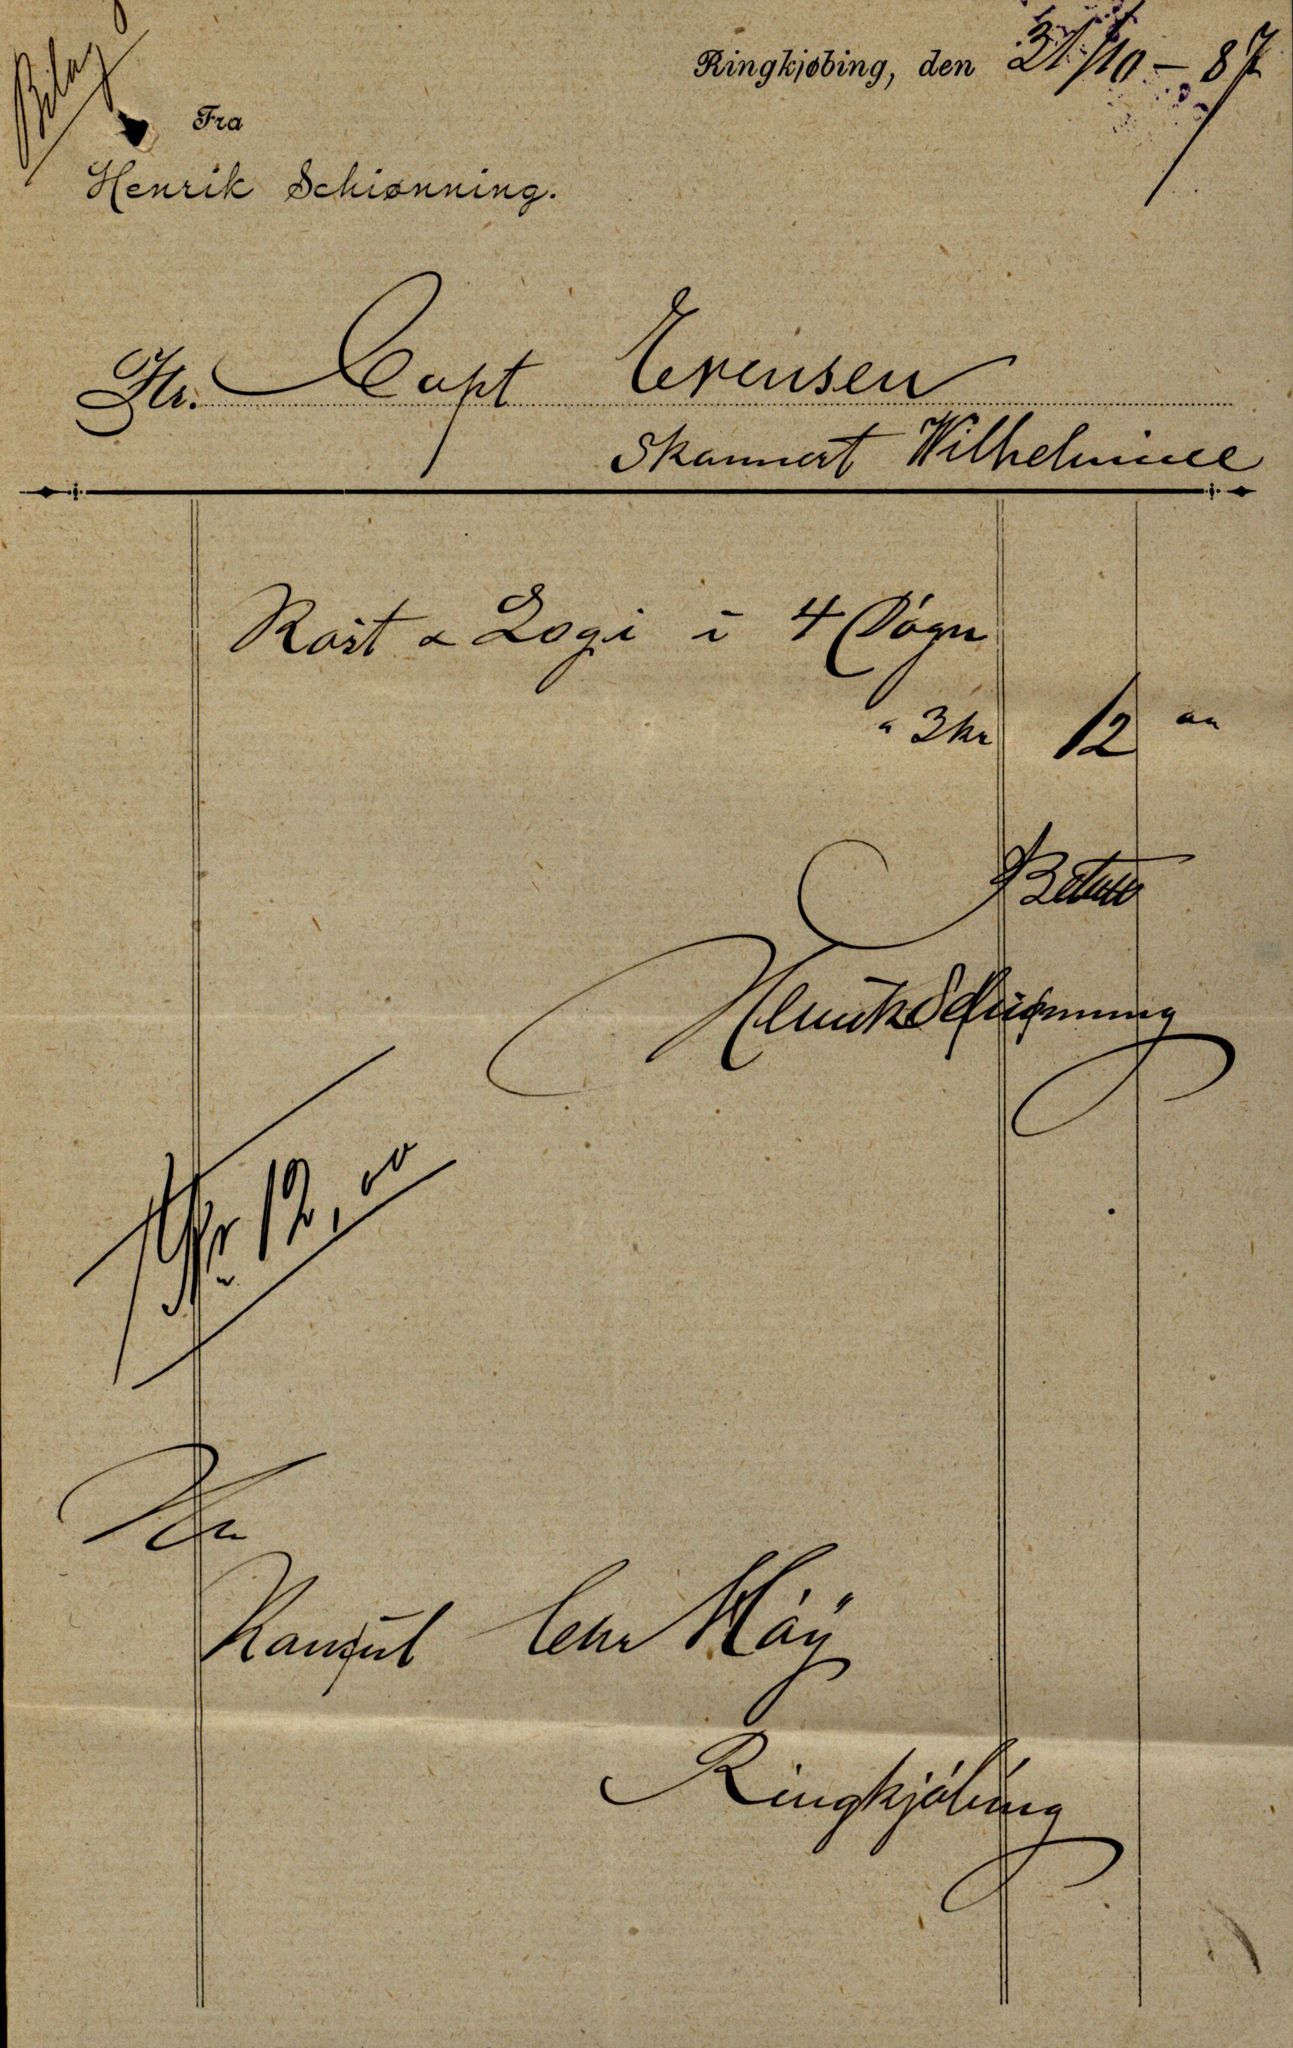 Bilag
Ringkjøbing, den 31/10 - 87
Fra
Henrik Schiønning.
Hr. Capt Evensen
Skonnert Wilhelmine
Kost & Logi i 4 Døgn
a 3 kr 12 "
Betalt
Henrik Schiønning
Kr 12,00
Hr
Konsul Chr Høÿ
Ringkjóbing